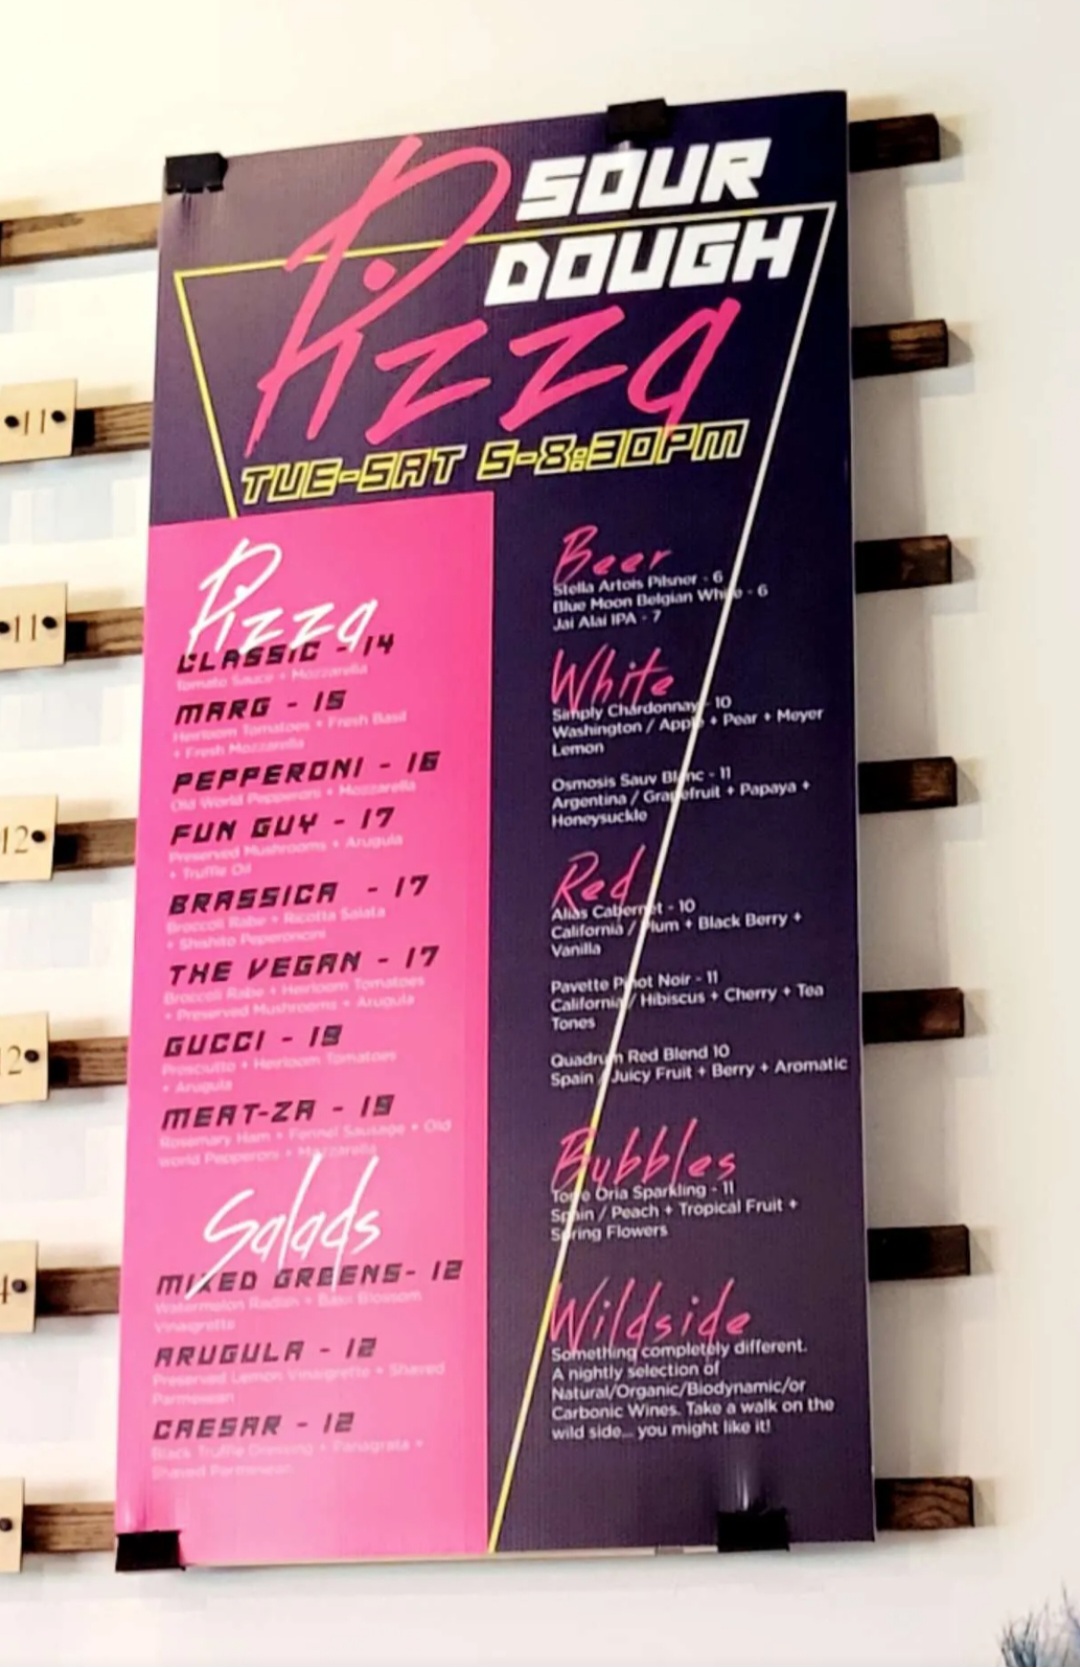 SOUR
DOUGH
Pizza
TUE-SAT 5-8:30PM
Pizza
CLASSIC - 14
Tomato Sauce + Mozzarella
MARG - 15
Heirloom Tomatoes + Fresh Basil
+ Fresh Mozzarella
PEPPERONI - 16
Old World Pepperoni + Mozzarella
FUN GUY - 17
Preserved Mushrooms + Arugula
+ Truffle Oil
BRASSICA - 17
Broccoli Rabe + Ricotta Salata
+ Shishito Peperoncini
THE VEGAN - 17
Broccoli Rabe + Heirloom Tomatoes
+ Preserved Mushrooms + Arugula
GUCCI - 19
Prosciutto + Heirloom Tomatoes
+ Arugula
MEAT-ZA - 19
Rosemary Ham + Fennel Sausage + Old
world Pepperoni + Mozzarella
Salads
MIXED GREENS- 12
Watermelon Radish + Basil Blossom
Vinaigrette
ARUGULA - 12
Preserved Lemon Vinaigrette + Shaved
Parmesean
CAESAR - 12
Black Truffle Dressing + Panagrata +
Shaved Parmesean
Beer
Stella Artois Pilsner - 6
Blue Moon Belgian White - 6
Jai Alai IPA - 7
White
Simply Chardonnay - 10
Washington / Apple + Pear + Meyer
Lemon
Osmosis Sauv Blanc - 11
Argentina / Grapefruit + Papaya +
Honeysuckle
Red
Alias Cabernet - 10
California / Plum + Black Berry +
Vanilla
Pavette Pinot Noir - 11
California / Hibiscus + Cherry + Tea
Tones
Quadrum Red Blend 10
Spain / Juicy Fruit + Berry + Aromatic
Bubbles
Torre Oria Sparkling - 11
Spain / Peach + Tropical Fruit +
Spring Flowers
Wildside
Something completely different.
A nightly selection of
Natural/Organic/Biodynamic/or
Carbonic Wines. Take a walk on the
wild side... you might like it!
11
11
12
12
4